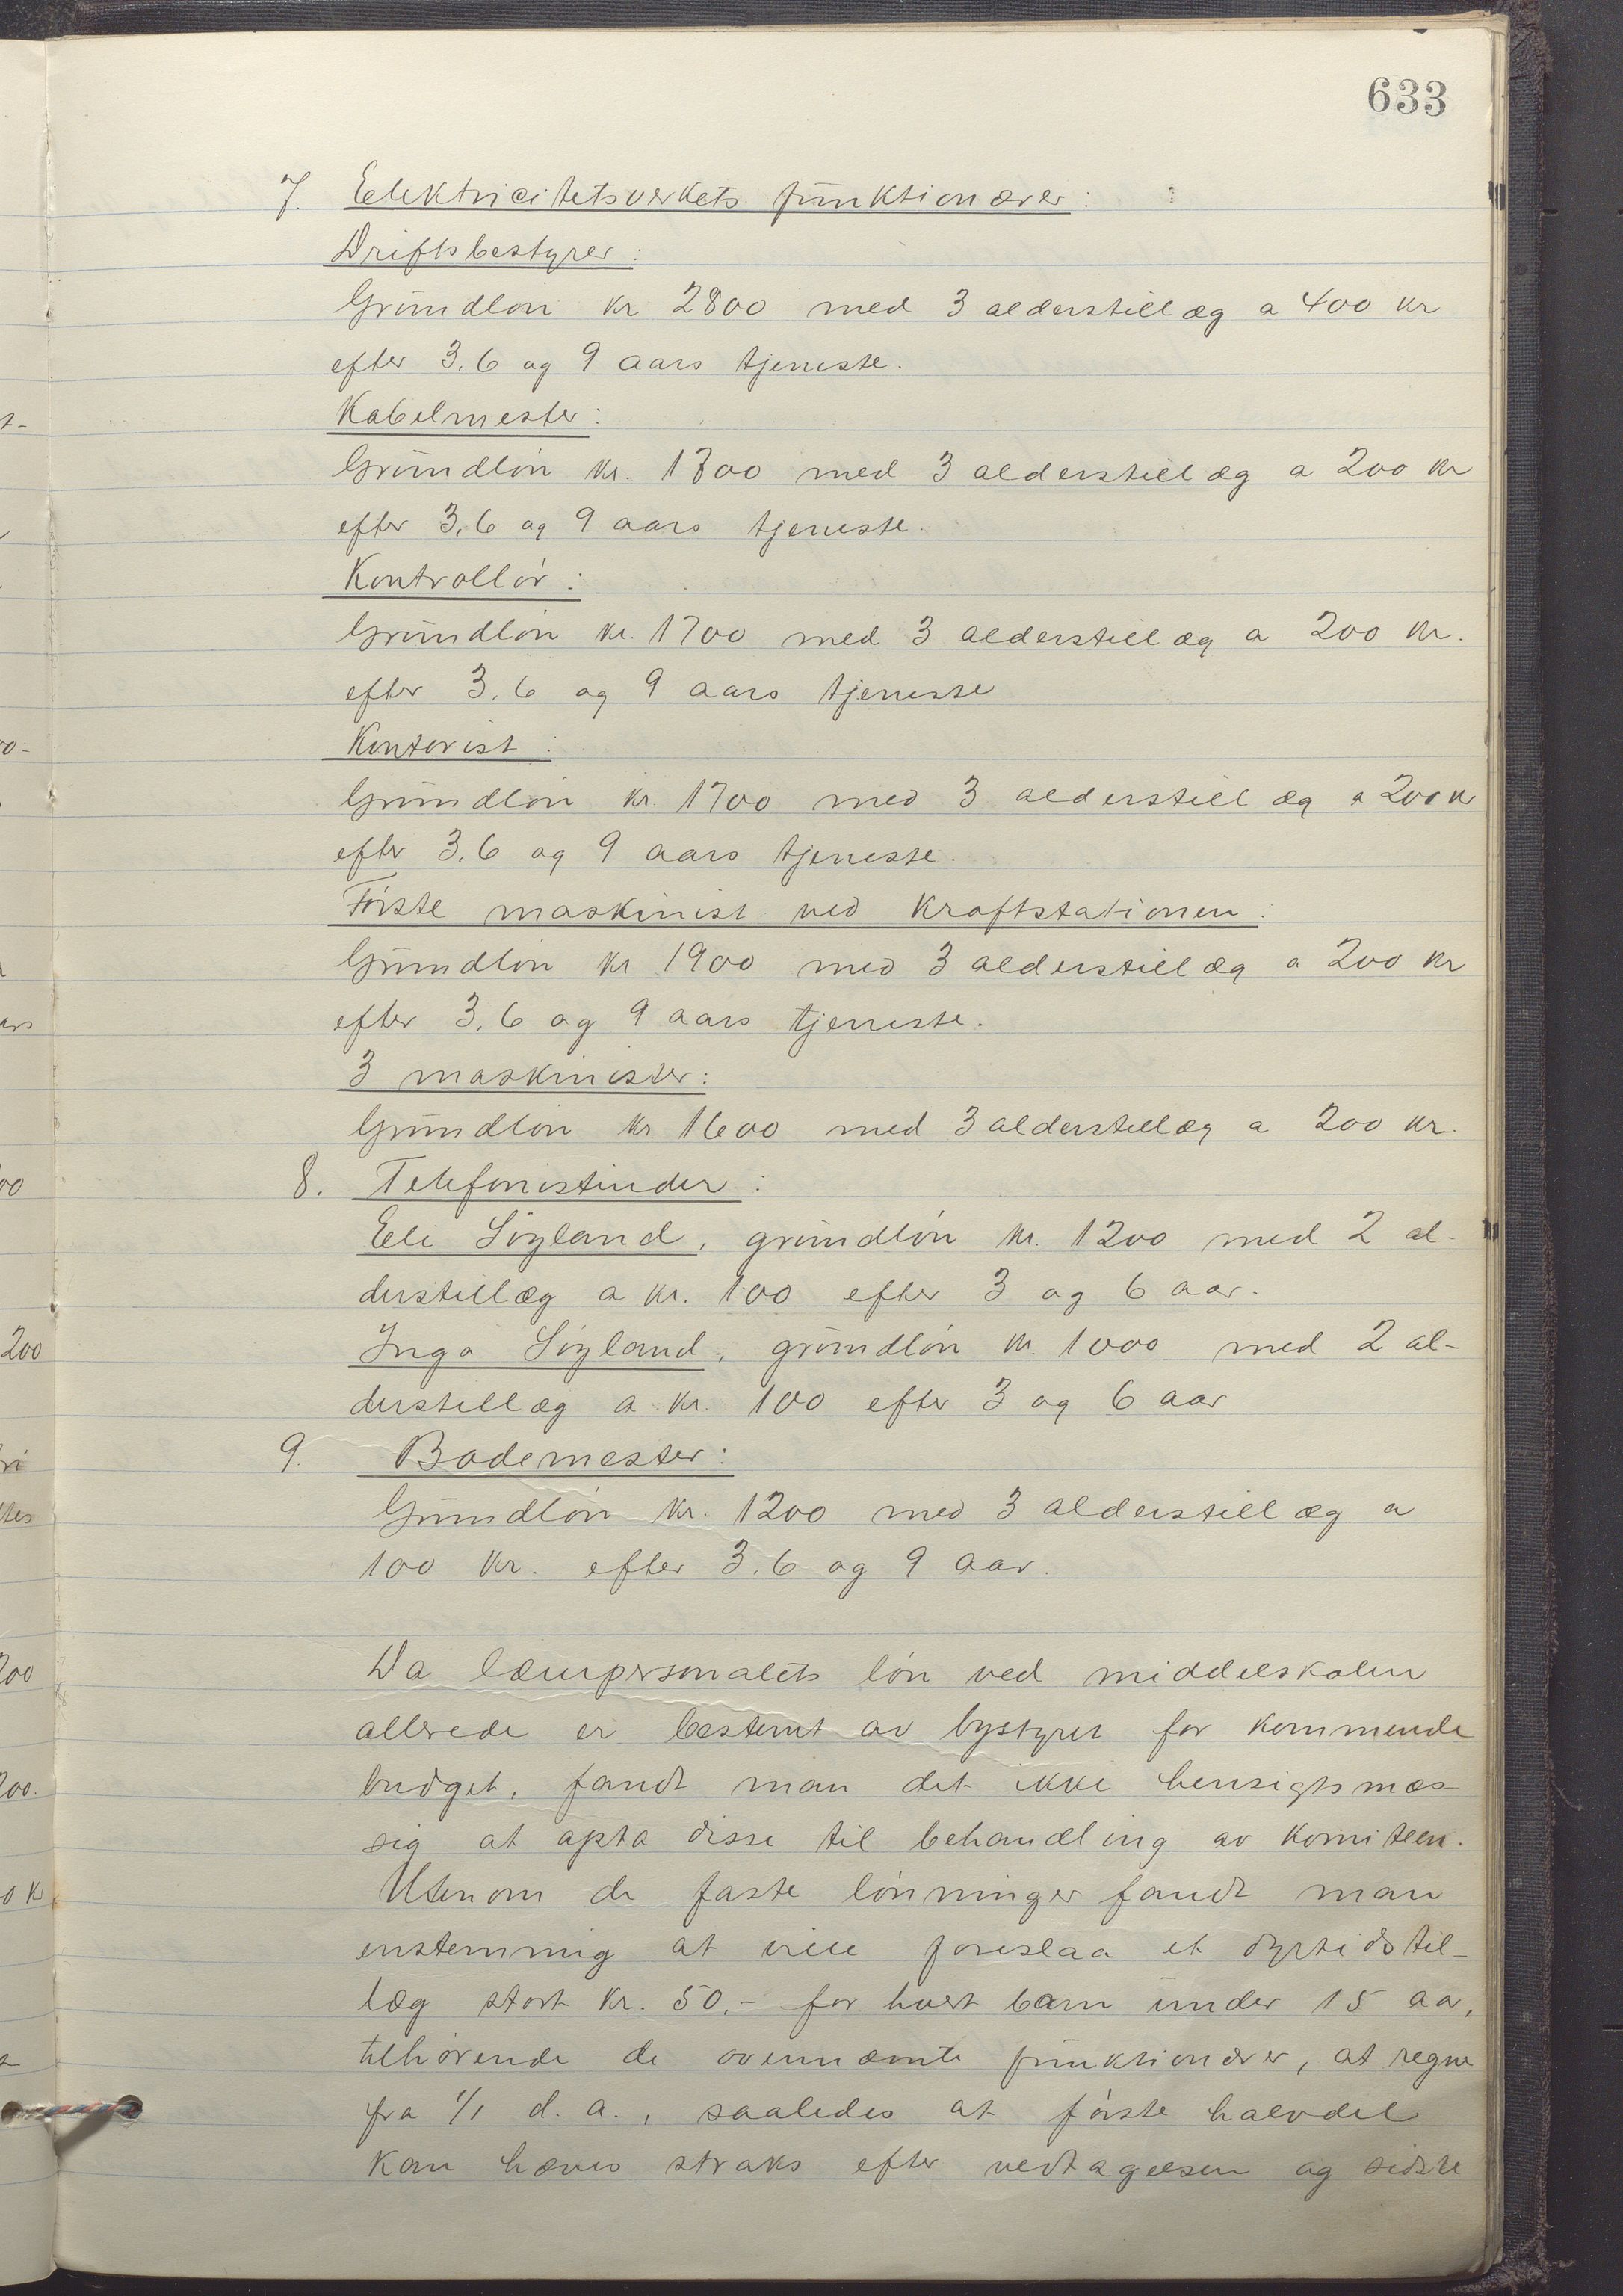 633
7. Elektricitetsverkets funktionærer:
Driftsbestyrer:
Grundløn kr 2800 med 3 alderstillæg a 400 kr
efter 3.6 og 9 aars tjeneste.
Kabelmester:
Grundløn kr. 1800 med 3 alderstillæg a 200 kr
efter 3.6 og 9 aars tjeneste.
Kontrollør:
Grundløn kr. 1700 med 3 alderstillæg a 200 kr.
efter 3.6 og 9 aars tjeneste
Kontorist:
Grundløn kr. 1700 med 3 alderstillæg a 200 kr
efter 3.6 og 9 aars tjeneste.
Første maskinist ved kraftstationen:
Grundløn kr 1900 med 3 alderstillæg a 200 kr
efter 3.6 og 9 aars tjeneste.
3 maskinister:
Grundløn kr. 1600 med 3 alderstillæg a 200 kr.
8. Telefonistinder:
Eli Søyland, grundløn kr. 1200 med 2 al-
derstillæg a kr. 100 efter 3 og 6 aar.
Inga Søyland, grundløn kr. 1000 med 2 al-
derstillæg a kr. 100 efter 3 og 6 aar
9. Bademester:
Grundløn kr. 1200 med 3 alderstillæg a
100 kr. efter 3.6 og 9 aar.
Da lærerpersonalets løn ved middelskolen
allerede er bestemt av bystyret for kommende
budget, fandt man det ikke hensigtsmæs-
sig at opta disse til behandling av komiteen.
Utenom de faste lønninger fandt man
enstemmig at ville foreslaa et dyrtidstil-
læg stort kr. 50.- for hvert barn under 15 aar,
tilhørende de ovennævnte funktionærer, at regne
fra 1/1 d.a., saaledes at første halvdel
kan hæves straks efter vedtagelsen og sidste